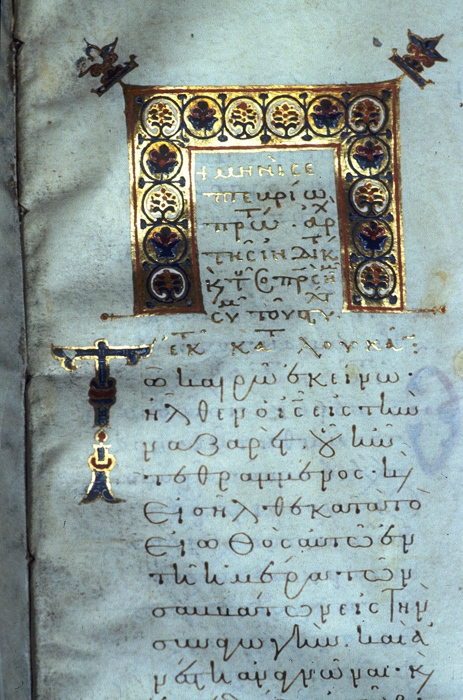 + μηνὶ σε
πτεβρίω
πρώτ ἀρχ
τῆς ἰνδικτ
συμ τοῦ στυλ
ἐκ τ κατ λουκᾶν
Τῶ καιρῶ ἐκείνω·
ἦλθεν ὁ ις εἰς τὴν
ναζαρέτ· οὗ ἦν
τεθραμμένος· κ
Εἰσῆλθε κατὰ τὸ
Εἰωθὸς αὐτῶ ἐν
τῆ ἡμέρα τῶν
σαββάτων εἰς τὴν
συναγωγήν· καὶ ἀ
νέστη ἀναγνῶναι· κ